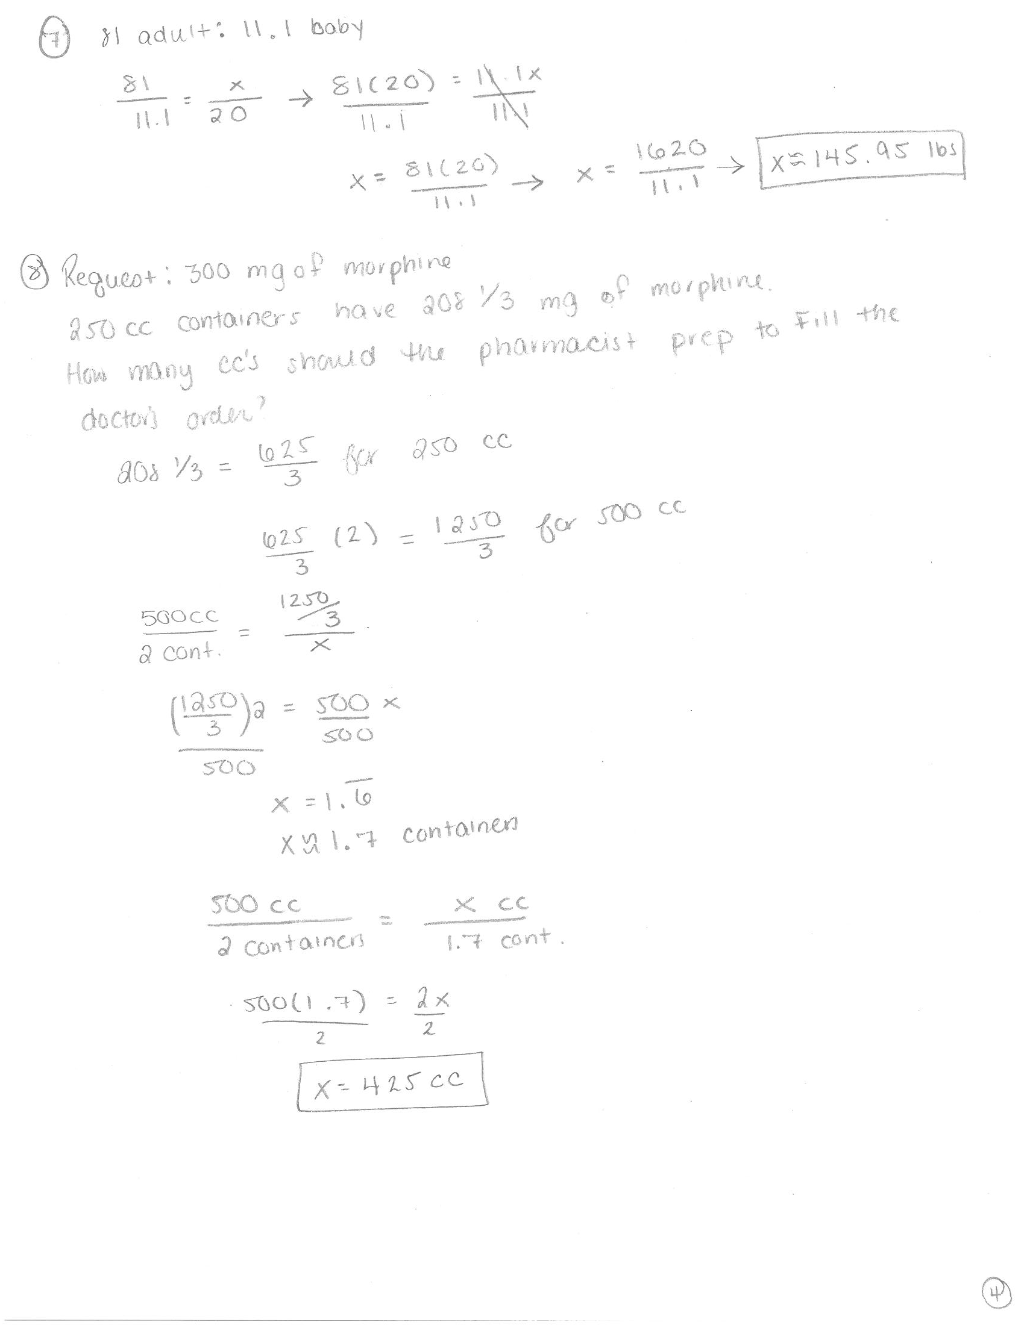 7 81 adult: 11.1 baby
81/11.1 = x/20 → 81(20)/11.1 = 11.1x/11.1
x = 81(20)/11.1 → x = 1620/11.1 → x ≈ 145.95 lbs
8 Request: 300 mg of morphine
250 cc containers have 208 1/3 mg of morphine.
How many cc's should the pharmacist prep to fill the
doctor's order?
208 1/3 = 625/3 for 250 cc
625/3 (2) = 1250/3 for 500 cc
500cc/2 cont. = 1250/3/x
(1250/3)2/500 = 500x/500
x = 1.6̅
x ≈ 1.7 containers
500 cc/2 containers = x cc/1.7 cont.
500(1.7)/2 = 2x/2
x = 425 cc
4